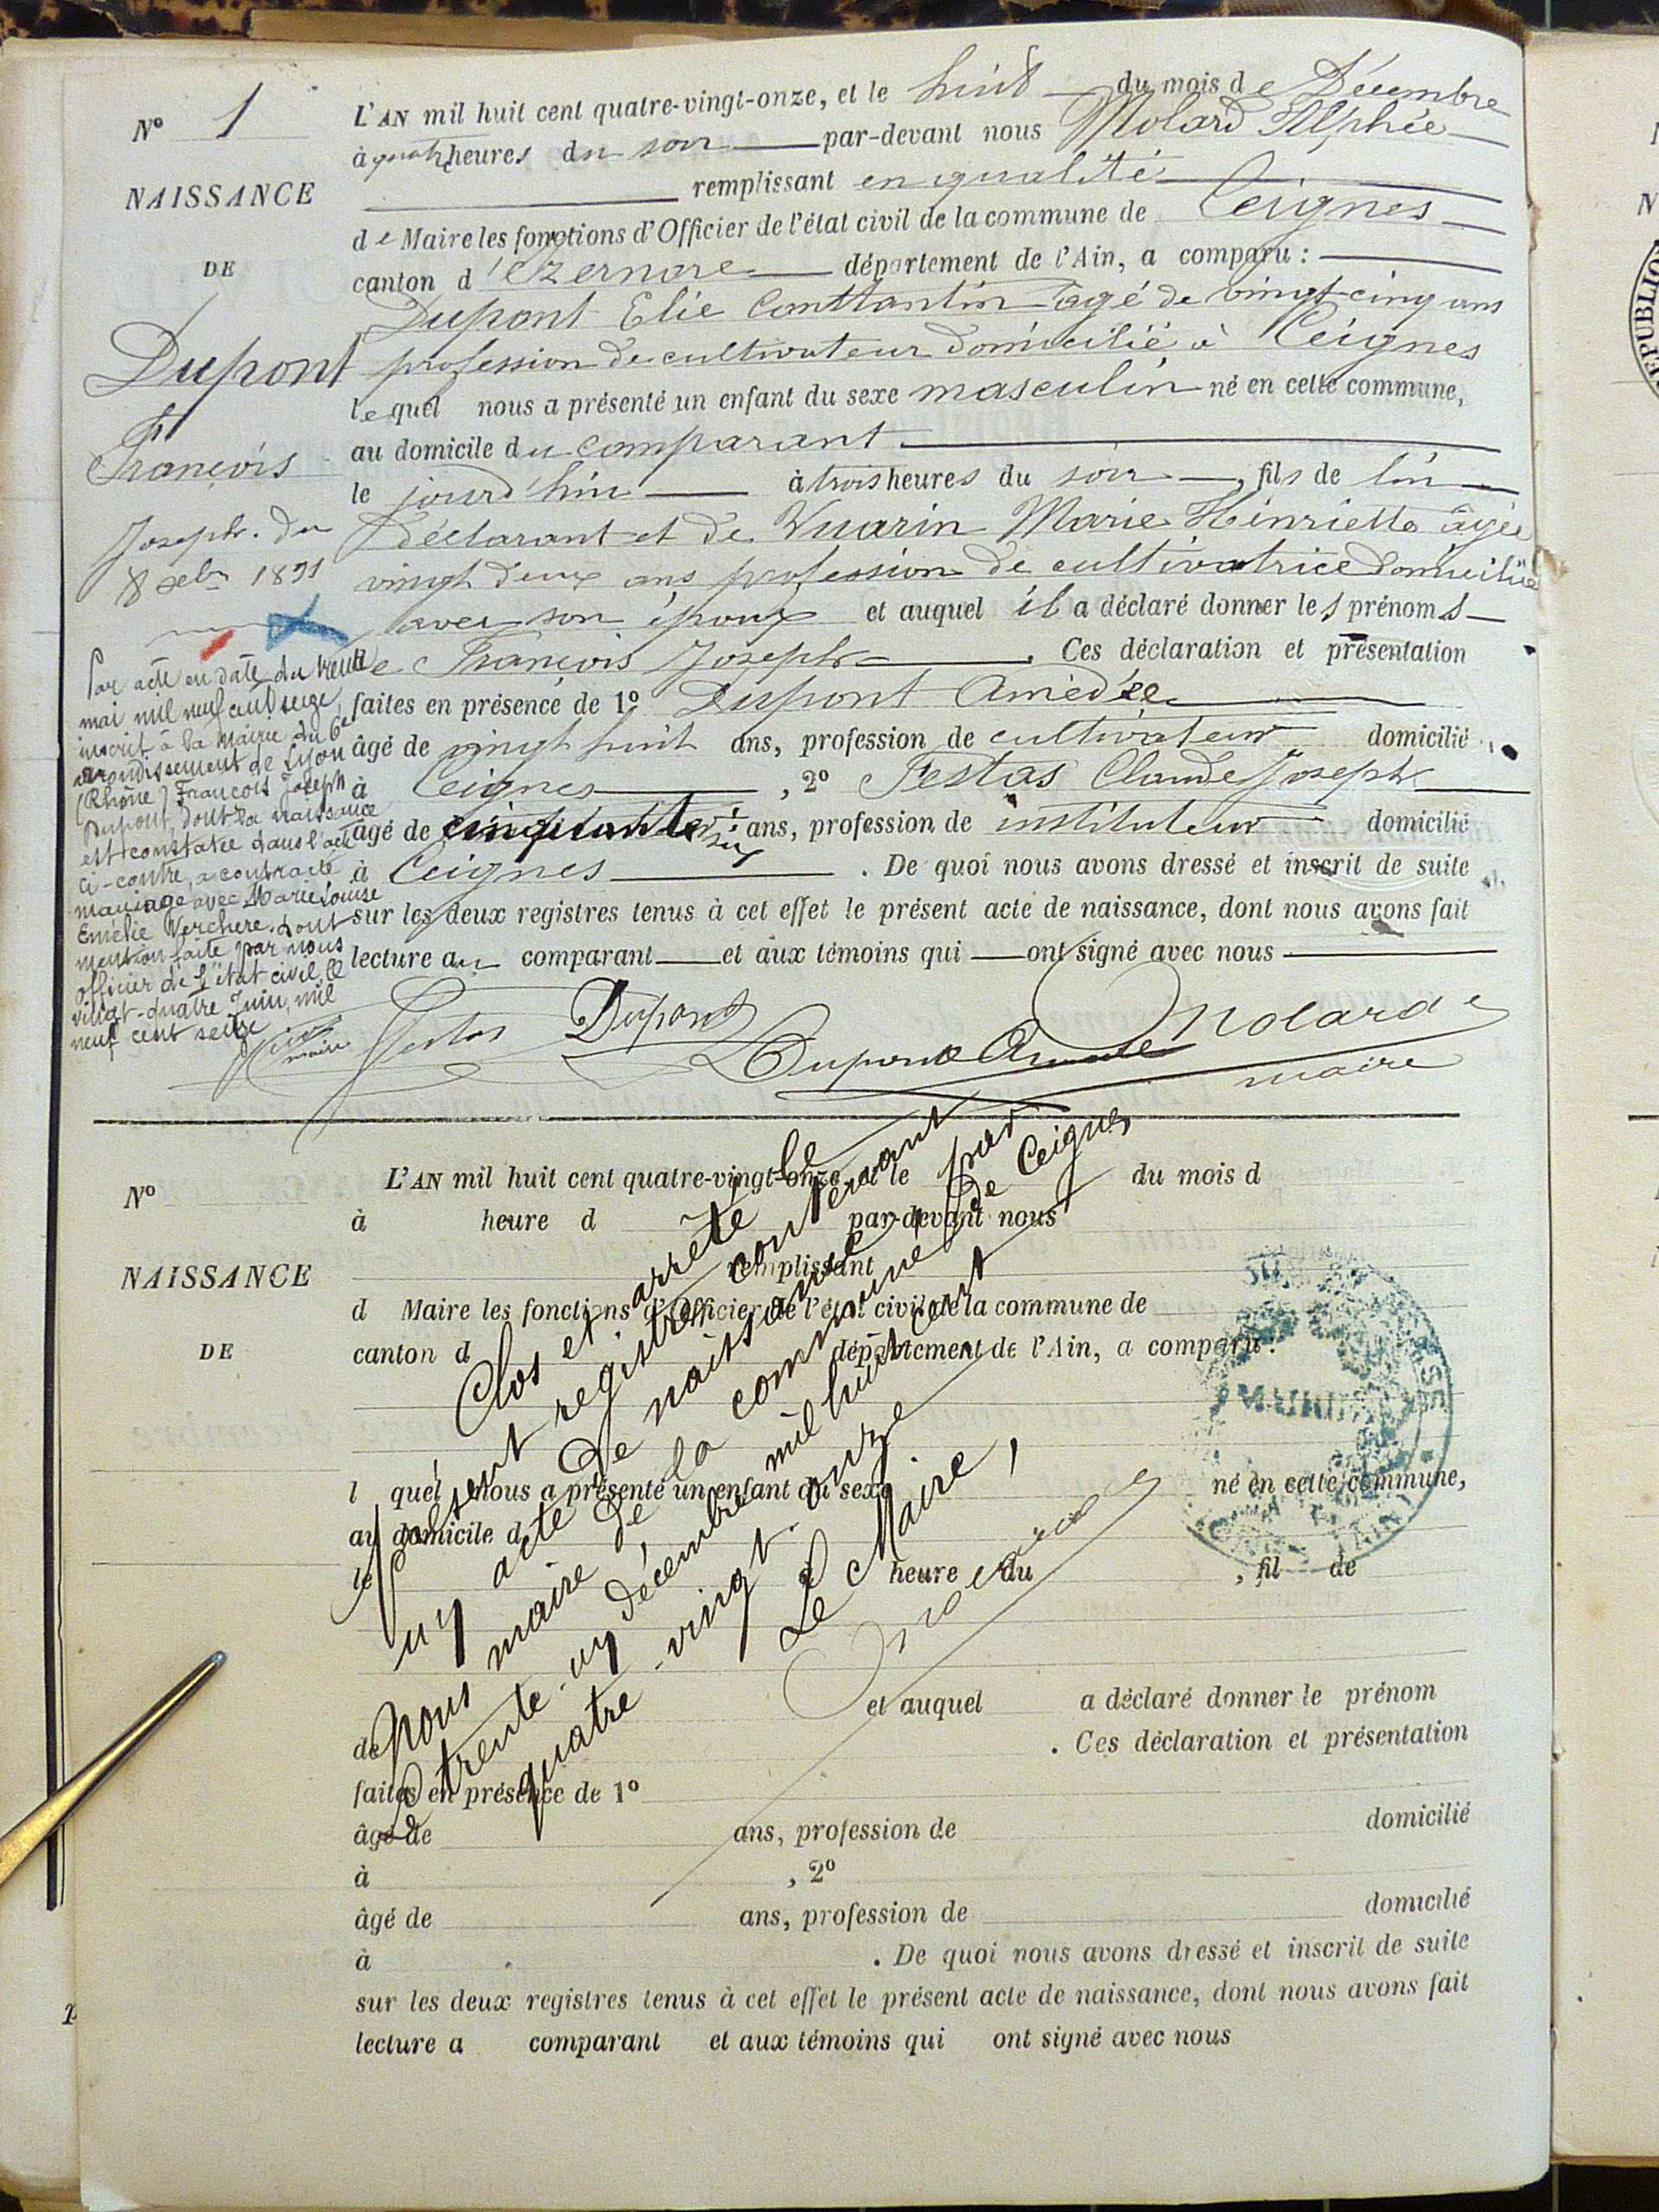 N° 1
NAISSANCE
DE
Dupont
François
Joseph. du
8 xbre 1891
Par acte en date du trente
mai mil neuf cent seize,
inscrit à la Mairie du 6e
arrondissement de Lyon
(Rhône) François Joseph
Dupont, dont la naissance
est constatée dans l'acte
ci-contre, a contracté
mariage avec Marie Louise
Emélie Verchere. dont
mention faite par nous
officier de l'état civil, le
vingt-quatre Juin, mil
neuf cent seize
maire
L'AN mil huit cent quatre-vingt-onze, et le huit du mois de Décembre
à quatre heures du soir par-devant nous Molard Alphée
remplissant en qualité
de Maire les fonctions d'Officier de l'état civil de la commune de Ceignes
canton d'Izernore département de l'Ain, a comparu :
Dupont Elie Conttantin âgé de vingt cinq ans
profession de cultivateur domicilié à Ceignes
lequel nous a présenté un enfant du sexe masculin né en cette commune,
au domicile du comparant
le jourd'hui à trois heures du soir, fils de lui
déclarant et de Vuarin Marie Henriette âgée
vingt deux ans profession de cultivatrice domiciliée
avec son époux et auquel il a déclaré donner les prénoms
de François Joseph. Ces déclaration et présentation
faites en présence de 1° Dupont Amédée
âgé de vingt huit ans, profession de cultivateur domicilié
à Ceignes, 2° Festas Claude Joseph
âgé de cinquante six ans, profession de instituteur domicilié
à Ceignes. De quoi nous avons dressé et inscrit de suite
sur les deux registres tenus à cet effet le présent acte de naissance, dont nous avons fait
lecture au comparant et aux témoins qui ont signé avec nous
Festas Dupont Dupont Amédée Molard
maire
N°
NAISSANCE
DE
L'AN mil huit cent quatre-vingt-onze, et le du mois d
à heure d par-devant nous
remplissant
d Maire les fonctions d'Officier de l'état civil de la commune de
canton d département de l'Ain, a comparu :
l quel nous a présenté un enfant du sexe né en cette commune,
au domicile d
le à heure du , fil de
et auquel a déclaré donner le prénom
de . Ces déclaration et présentation
faites en présence de 1°
âgé de ans, profession de domicilié
à , 2°
âgé de ans, profession de domicilié
à . De quoi nous avons dressé et inscrit de suite
sur les deux registres tenus à cet effet le présent acte de naissance, dont nous avons fait
lecture a comparant et aux témoins qui ont signé avec nous
Clos et arrêté le
présent registre contenant
un acte de naissance par
nous maire de la commune de Ceignes
Le trente-un décembre mil huit cent
quatre-vingt-onze
Le Maire,
Molard